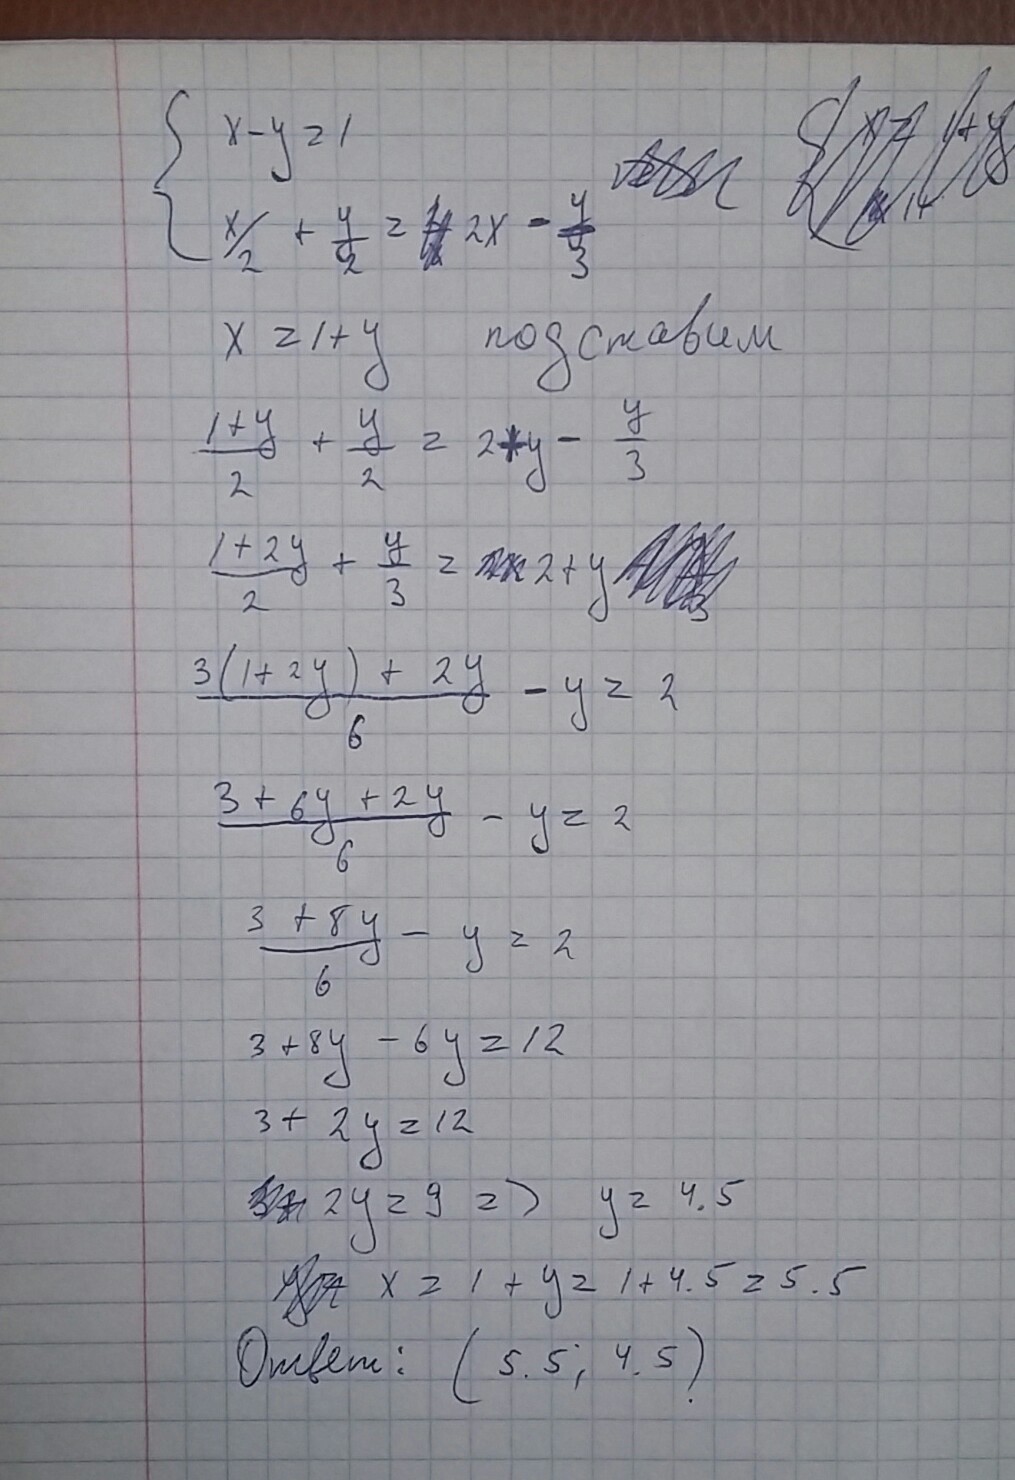 x-y=1
x/2 + y/2 = 2x - y/3
x = 1+y подставим
(1+y)/2 + y/2 = 2+y - y/3
(1+2y)/2 + y/3 = 2+y
(3(1+2y) + 2y)/6 - y = 2
(3 + 6y + 2y)/6 - y = 2
(3 + 8y)/6 - y = 2
3+8y - 6y = 12
3+ 2y = 12
2y = 9 => y = 4.5
x = 1 + y = 1+4.5 = 5.5
Ответ: (5.5; 4.5)